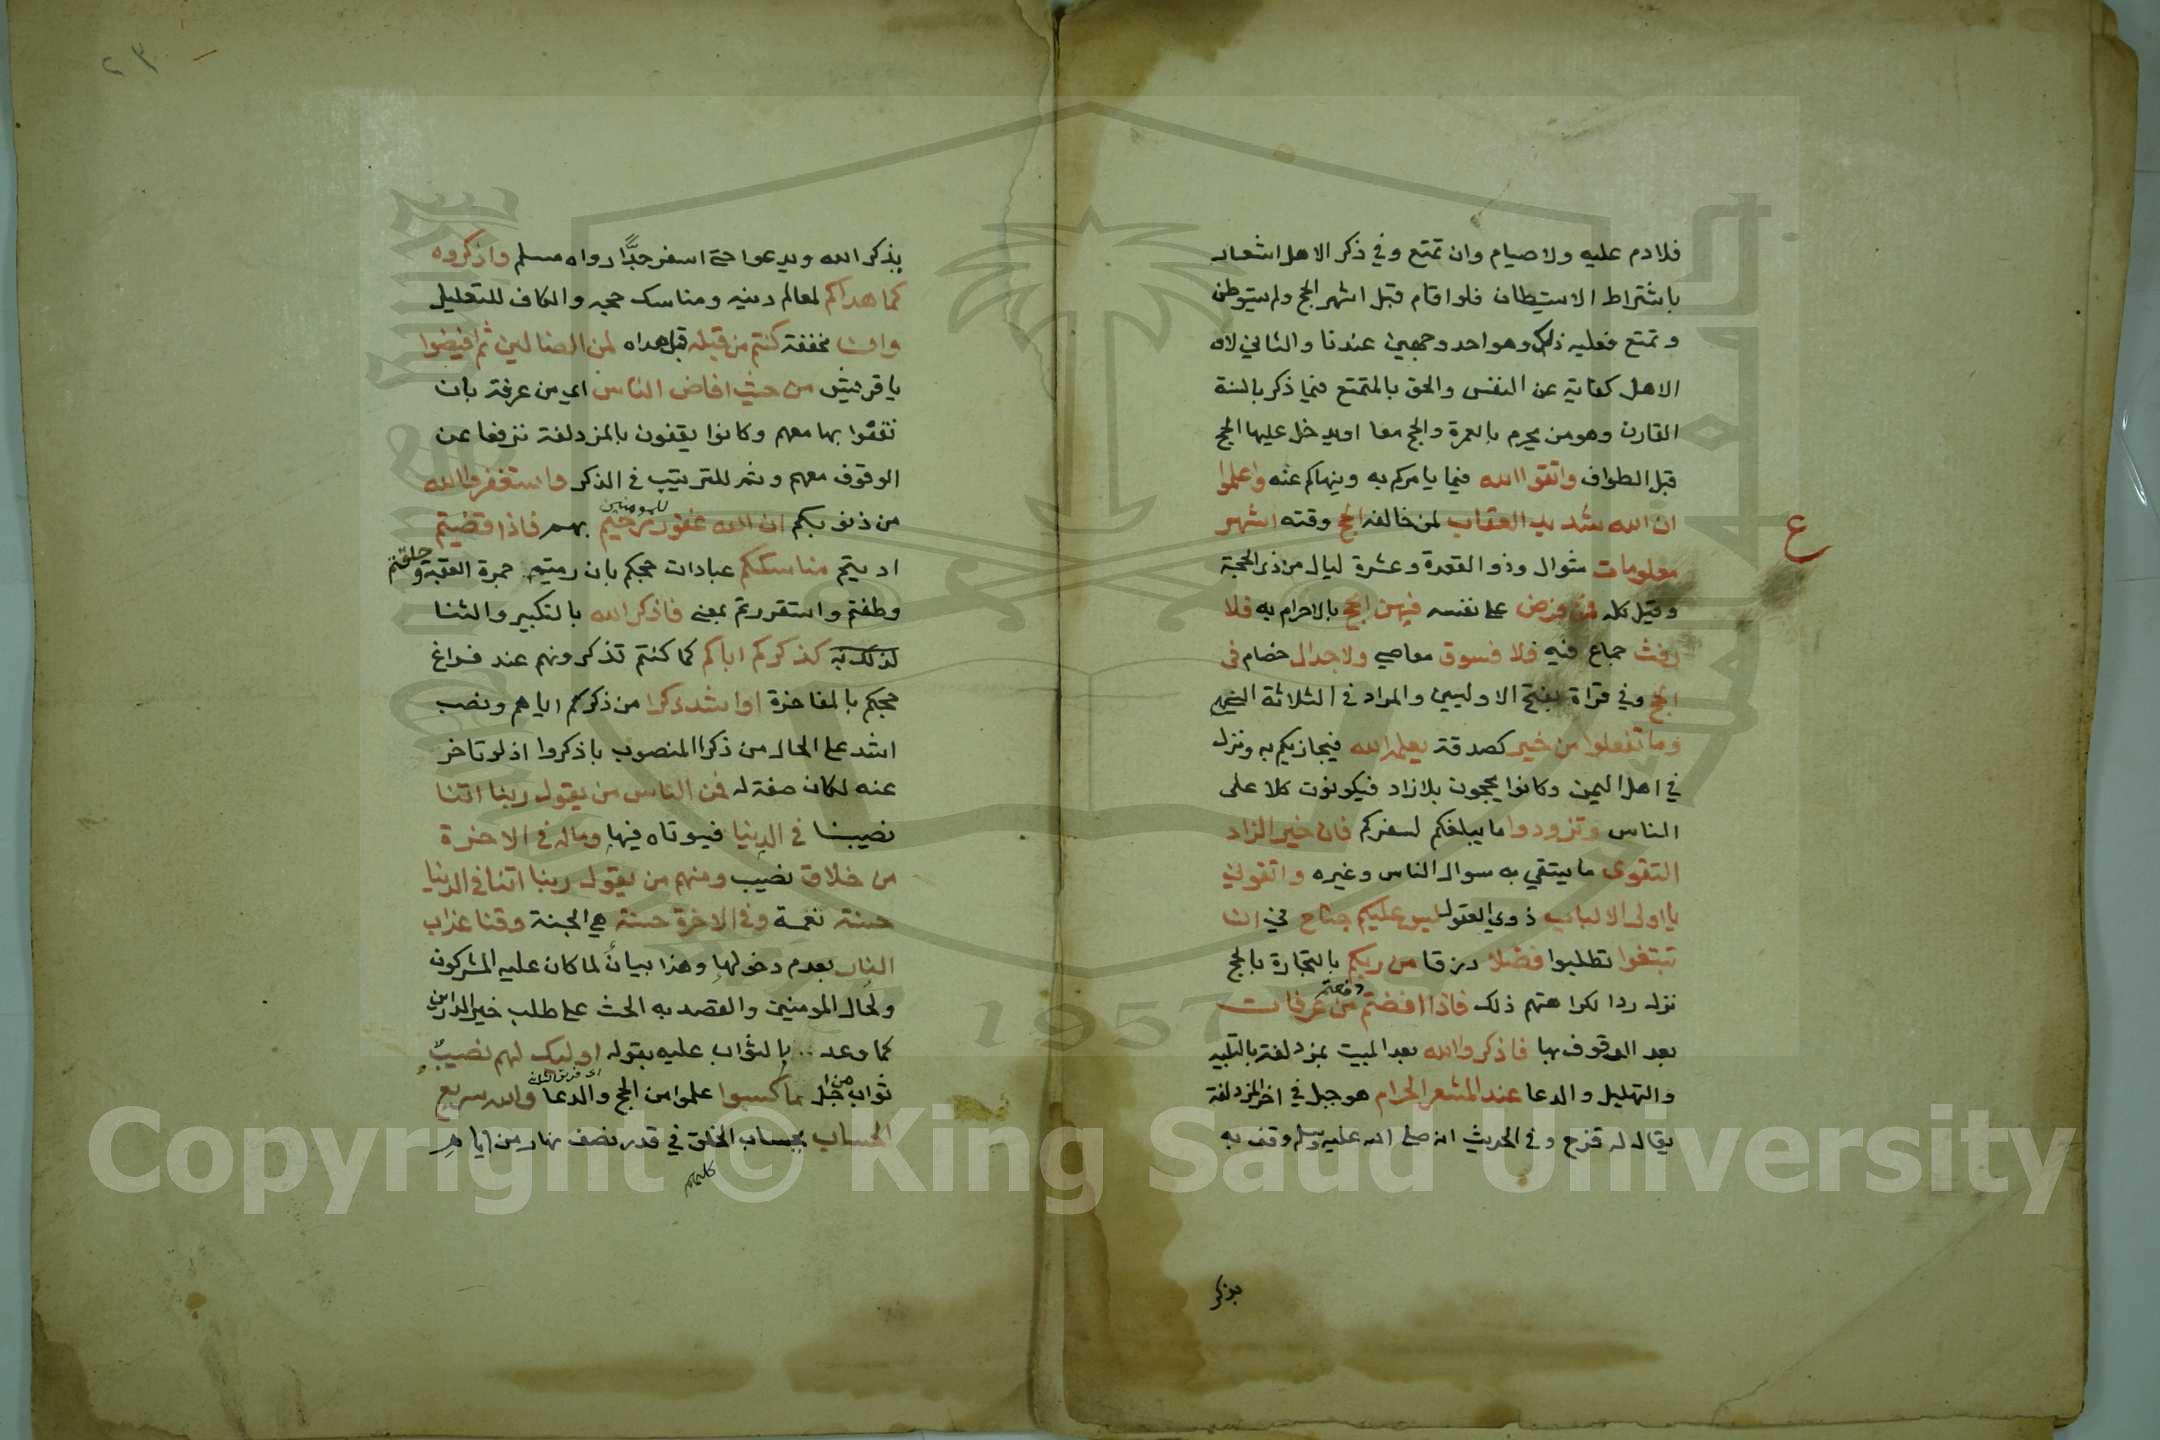 فلادم عليه ولا صيام وان تمتع وفي ذكر الاهل اشعار
باشتراط الاستيطان فلو اقام قبل اشهر الحج ولم يستوطن
وتمتع فعليه ذلك وهو احد وجهين عندنا والثاني لا لان
الاهل كناية عن النفس والحق بالمتمتع فيما ذكر بالسنة
القارن وهو من يحرم بالعمرة والحج معا او يدخل عليها الحج
قبل الطواف واتقوا الله فيما يامركم به وينهاكم عنه واعلموا
ان الله شديد العقاب لمن خالفه الحج وقته اشهر
ع
معلومات شوال وذو القعدة وعشرة ليال من ذي الحجة
وقيل كله فمن فرض على نفسه فيهن الحج بالاحرام به فلا
رفث جماع فيه فلا فسوق معاصي ولا جدال خصام في
الحج وفي قراة بفتح الاوليين والمراد في الثلاثة النهي
وما تفعلوا من خير كصدقة يعلمه الله فيجازيكم به ونزل
في اهل اليمن وكانوا يحجون بلا زاد فيكونوت كلا على
الناس وتزودوا ما يبلغكم لسفركم فان خير الزاد
التقوى ما يتقي به سوال الناس وغيره واتقون
يا اولى الالباب ذوي العقول ليس عليكم جناح في ان
تبتغوا تطلبوا فضلا رزقا من ربكم بالتجارة بالحج
نزل ردا لكراهتهم ذلك فاذا افضتم من عرفات
دفعتم
بعد الوقوف بها فاذكروا الله بعد المبيت بمزدلفة بالتلبيه
والتهليل والدعا عند المشعر الحرام هو جبل في اخر المزدلفة
يقال له قزح وفي الحديث انه صلى الله عليه وسلم وقف به
بذكر
٢٣
يذكر الله ويدعوا حتى اسفر جدًّا رواه مسلم واذكروه
كما هداكم لمعالم دينه ومناسك حجه والكاف للتعليل
وان مخففة كنتم من قبله قبل هداه لمن الضالين ثم افيضوا
يا قريش من حيث افاض الناس اي من عرفة بان
تقفوا بها معهم وكانوا يقفون بالمزدلفة ترفعا عن
الوقوف معهم وثم للترتيب في الذكر واستغفروا الله
من ذنوبكم ان الله غفور رحيم بهم فاذا قضيتم
للمومنين
اديتم مناسككم عبادات حجكم بان رميتم جمرة العقبة وحلقتم
وطفتم واستقررتم بمعنى فاذكر الله بالتكبير والثنا
كذكركم اباكم كما كنتم تذكرونهم عند فراغ
حجكم بالمفاخرة او اشد ذكرا من ذكركم اياهم ونصب
اشد على الحال من ذكرا المنصوب باذكروا اذ لو تاخر
عنه لكان صفة له فمن الناس من يقول ربنا اتنا
نصيبنا في الدنيا فيوتاه فيها وماله في الاخرة
من خلاق نصيب ومنهم من يقول ربنا اتنا في الدنيا
حسنة نعمة وفي الاخرة حسنة هي الجنة وقنا عذاب
النار بعدم دخولها وهذا بيان لما كان عليه المشركون
ولحال المومنين والقصد به الحث على طلب خير الدارين
كما وعد بالثواب عليه بقوله اوليك لهم نصيب
ثواب من اجل مما كسبوا عملوا من الحج والدعا والله سريع
الحساب يحساب الخلق في قدر نصف نهار من ايا
Copyright © King Saud University
1957